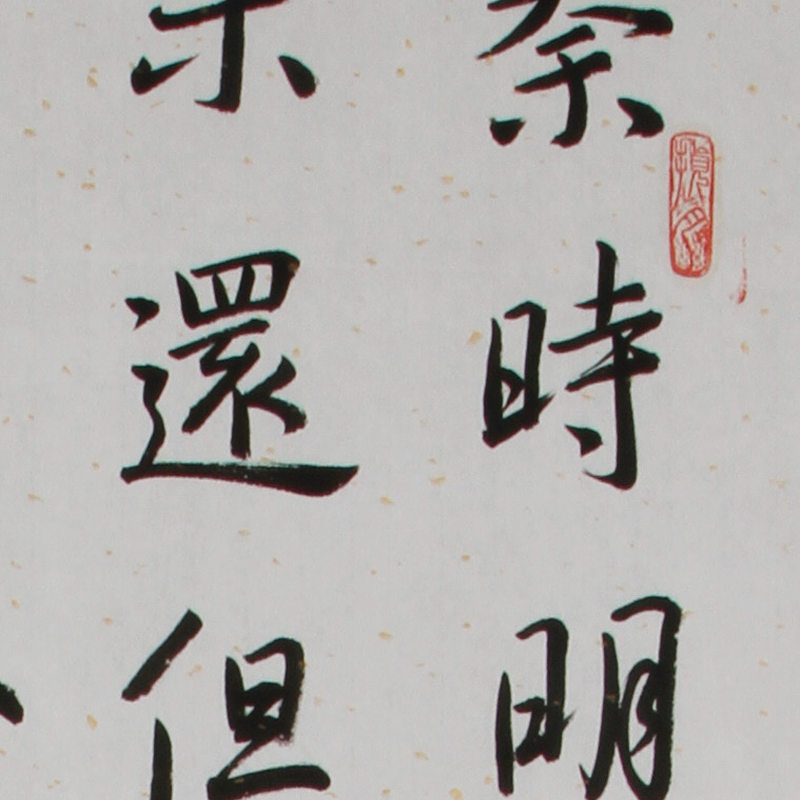 秦時明
未還但